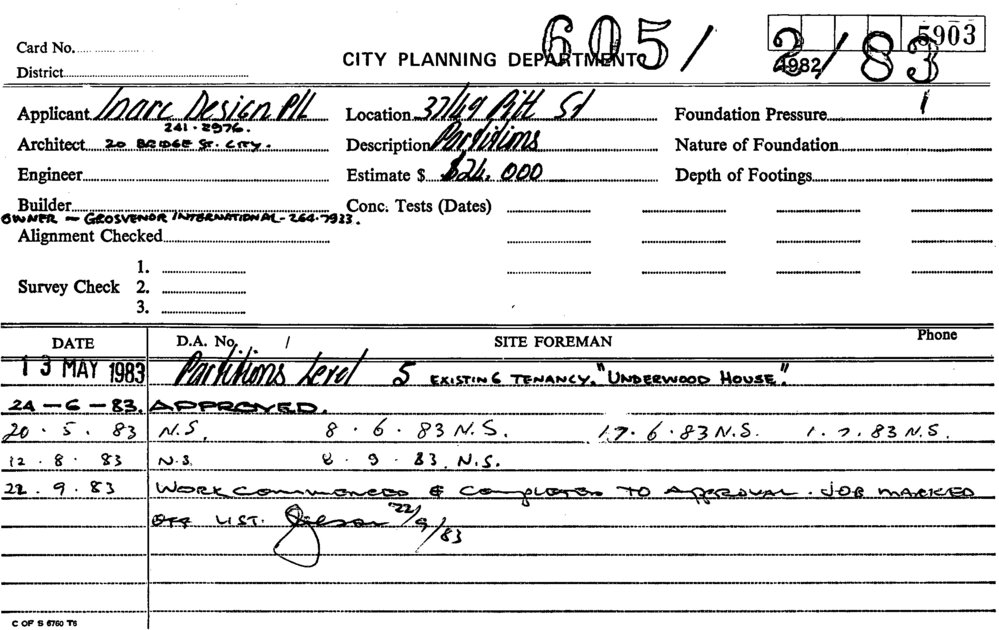 605/2/83
5903
1982
Card No.
CITY PLANNING DEPARTMENT
District
Applicant Inarc Design P/L
Location 37/49 Pitt St
Foundation Pressure
241·2976.
Architect 20 BRIDGE ST. CITY.
Description Partitions
Nature of Foundation
Engineer
Estimate $ $26,000
Depth of Footings
Builder
Conc. Tests (Dates)
OWNER – GROSVENOR INTERNATIONAL – 264·7933.
Alignment Checked
1.
Survey Check 2.
3.
DATE D.A. No. / SITE FOREMAN Phone
13 MAY 1983 Partitions Level 5 EXISTING TENANCY. "UNDERWOOD HOUSE".
24-6-83. APPROVED.
20·5·83 N.S. 8·6·83 N.S. 17·6·83 N.S. 1·7·83 N.S.
12·8·83 N.S. 8·9·83. N.S.
22·9·83 WORK COMMENCED & COMPLETED TO APPROVAL. JOB MARKED
OFF LIST. 22/9/83
C OF S 6760 T6